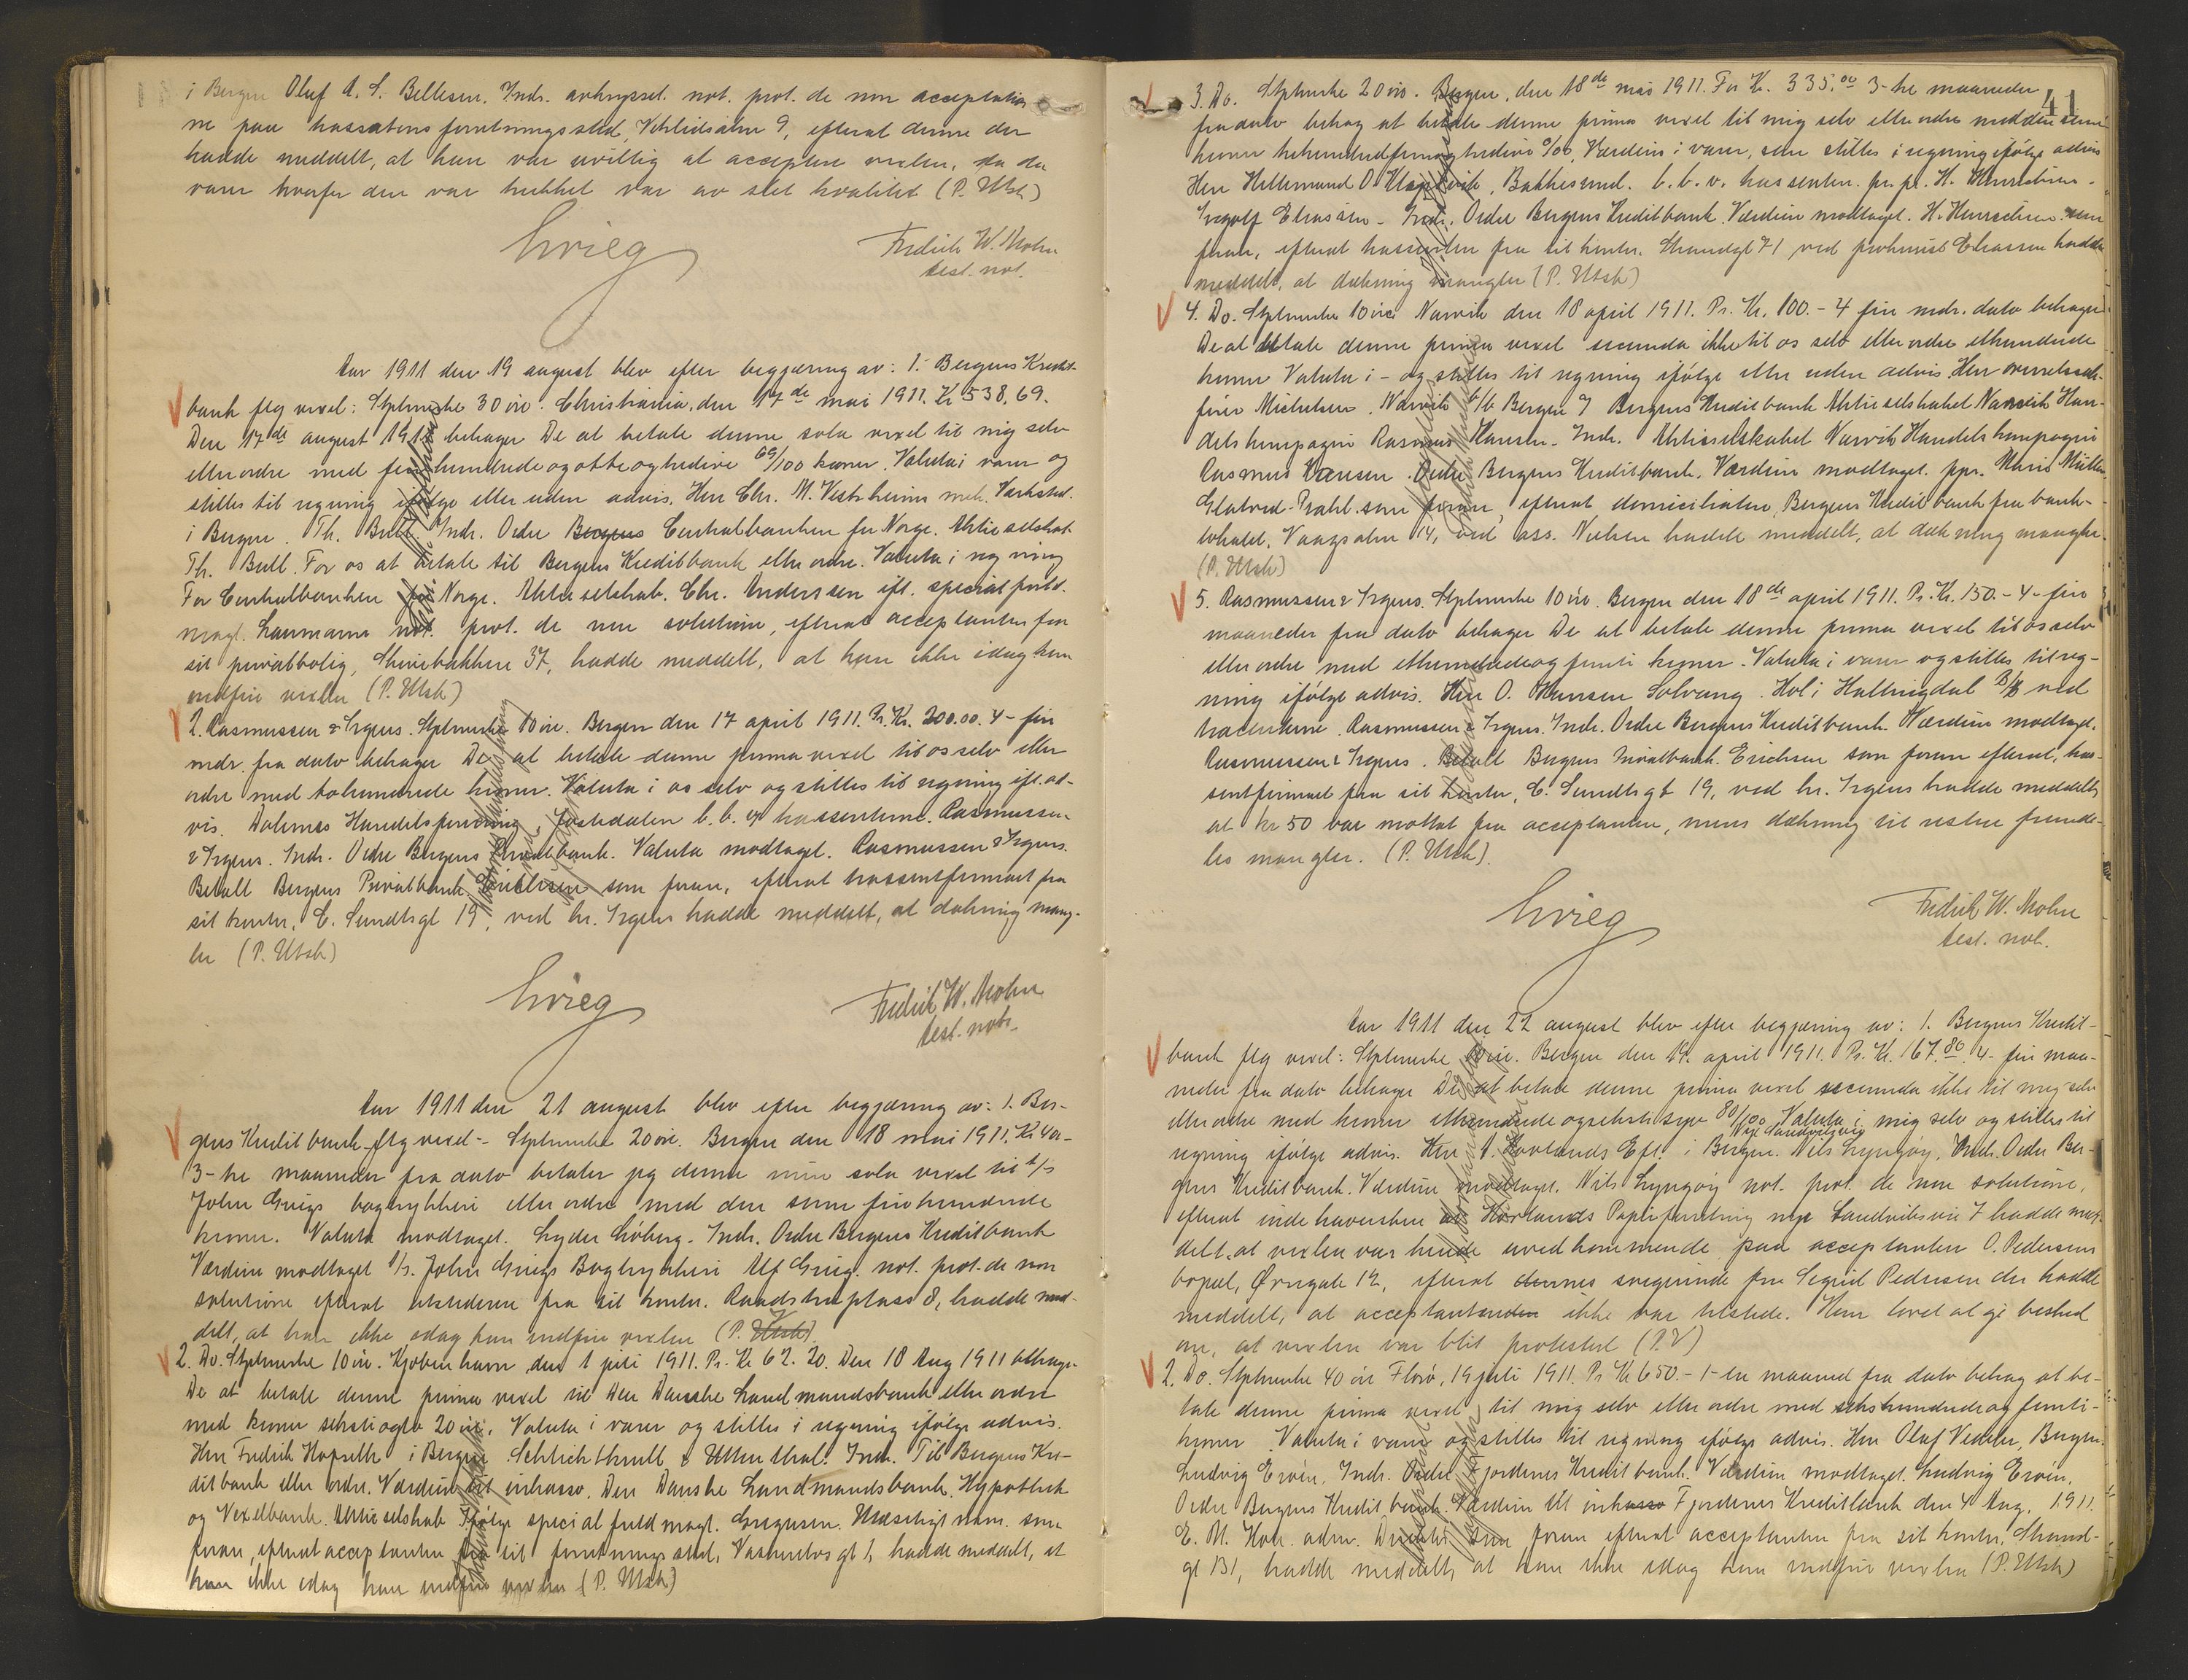 i Bergen Oluf A. S. Bellesen. Indr. avkrysset. not. prot. de non acceptation
ne paa trassatens forretningssted, Vetrlidsalm 9, efterat denne der
hadde meddelt, at han var uvillig at acceptere vexlen, da de
varer hvorfor den var trukket var av slet kvalitet (P. Utsk)
Grieg
Fredrik W. Mohn
test. not.
Aar 1911 den 19 august blev efter begjæring av: 1. Bergens Kredit-
bank flg vexel: Stplmerke 30 øre. Christiania, den 17de mai 1911. Kr 538,69.
Den 17de august 1911 behager De at betale denne sola vexel til mig selv
eller ordre med femhundredeogotteogtredive 69/100 kroner. Valuta i varer og
stilles til regning ifølge eller uden advis. Herr Chr. M. Vestrheims mek. Verksted.
i Bergen. Th. Bull. Indr. Ordre Bergens Centralbanken for Norge. Aktieselskab
Th. Bull. For os at betale til Bergens Kreditbank eller ordre. Valuta i regning
For Centralbanken for Norge. Aktieselskab. Chr. Anderssen ifl. special fuld-
magt. Laumann not. prot. de non solutione, efterat acceptanten fra
sit privatbolig, Skivebakken 37, hadde meddelt, at han ikke idag kan
indfri vexlen (P. Utsk)
2. Rasmussen & Irgens. Stplmerke 10 øre. Bergen den 17 april 1911. Pr. Kr. 200.00. 4 - fire
mdr. fra dato behager De at betale denne prima vexel til os selv eller
ordre med tohundrede kroner. Valuta i os selv og stilles til regning ifl. ad-
vis. Dalernes Handelsforening, Jostedalen b. b. af trassenterne. Rasmussen
& Irgens. Indr. Ordre Bergens Privatbank. Valuta modtaget. Rasmussen & Irgens.
Betalt Bergens Privatbank. Erichsen som foran, efterat trassentfirmaet fra
sit kontor, C. Sundtsgt 19, ved hr. Irgens hadde meddelt, at dækning mang-
ler (P. Utsk)
Grieg
Fredrik W. Mohn
test. not.
Aar 1911 den 21 august blev efter begjæring av: 1. Ber-
gens Kreditbank flg vexel - Stplmerke 20 øre. Bergen den 18 mai 1911. Kr 400-
3-tre maaneder fra dato betaler jeg denne min sola vexel til A/S
John Griegs bogtrykkeri eller ordre med den sum firehundrede
kroner. Valuta modtaget. Lyder Løberg. Indr. Ordre Bergens Kreditbank
Værdien modtaget A/S. John Griegs Bogtrykkeri Alf Grieg. not. prot. de non
solutione efterat utstederen fra sit kontor. Raadstueplass 8, hadde med-
delt, at han ikke idag kan indfri vexlen (P. Utsk)
2. Do. Stplmerke 10 øre. Kjøbenhavn den 1 juli 1911. Pr. Kr 62.20. Den 18 Aug 1911 behager
De at betale denne prima vexel til Den Danske Landmandsbank eller ordre
med kroner sekstiogto 20 øre. Valuta i varer og stilles i regning ifølge advis.
Herr Fredrik Hopsette i Bergen. Schlichtkrull & Uttenthal. Indr. Til Bergens Kre-
ditbank eller ordre. Værdien til inkasso. Den Danske Landmandsbank, Hypothek
og Vexelbank. Aktieselskab Ifølge special fuldmagt. Gregersen. Ulæseligt navn. som
foran, efterat acceptanten fra sit forretningssted, Vaskerelvs gt 1, hadde meddelt, at
han ikke idag kan indfri vexlen (P. Utsk)
41
3. Do. Stplmerke 20 øre. Bergen, den 18de mai 1911. For Kr. 335,00 3-tre maaneder
fra dato behag at betale denne prima vexel til mig selv eller ordre med den sum
kroner trehundredfemogtredive 0/00. Værdien i varer, som stilles i regning ifølge advis
Herr Hillemand O. Klepsvik, Bakkesund. b.b.v. trassenten. pr. pr. H. Henrichsen.
Ingolf Eliassen - Indr. Ordre Bergens Kreditbank. Værdien modtaget. H. Henrichsen som
foran, efterat trassenten fra sit kontor. Strandgt 71 ved prokurist Eliassen hadde
meddelt, at dækning mangler (P. Utsk)
4. Do. Stplmerke 10 øre Narvik den 18 april 1911. Pr. Kr. 100.- 4 fire mdr. dato behager
De at betale denne prima vexel secunda ikke til os selv eller ordre ethundrede
kroner Valuta i - og stilles til regning ifølge eller uden advis. Herr
fører Michelsen. Narvik b/b Bergen I Bergens Kreditbank Aktieselskabet Narvik Han-
delskompagni Rasmus Hansen. Indr. Aktieselskabet Narvik Handelskompagni
Rasmus Hansen. Ordre Bergens Kreditbank. Værdien modtaget. ppr. Marie Müller
Glatved-Prahl. som foran, efterat domiciliaten, Bergens Kreditbank fra bank-
lokalet, Vaagsalm 14, ved ass. Nielsen hadde meddelt, at dækning mangler.
(P. Utsk)
5. Rasmussen & Irgens. Stplmerke 10 øre. Bergen den 18de april 1911. Pr. Kr. 150.- 4- fire
maaneder fra dato behager De at betale denne prima vexel til os selv
eller ordre med ethundredeogfemti kroner. Valuta i varer og stilles til reg-
ning ifølge advis. Herr O. Hansen Solvang. Hol i Hallingdal B/B ved
trassenterne. Rasmussen & Irgens. Indr. Ordre Bergens Kreditbank. Værdien modtaget.
Rasmussen & Irgens. Betalt Bergens Privatbank. Erichsen som foran efterat, tras-
sentfirmaet fra sit kontor, C. Sundtsgt 19, ved hr. Irgens hadde meddelt,
at kr 50 var mottat fra acceptanten, mens dækning til resten fremde-
les mangler. (P. Utsk).
Grieg
Fredrik W. Mohn
test. not.
Aar 1911 den 22 august blev efter begjæring av: 1. Bergens Kredit-
bank flg vexel: Stplmerke 10 øre. Bergen den 19. april 1911. Pr. Kr. 167.80 4- fire maa-
neder fra dato behager De at betale denne prima vexel secunda ikke til mig selv
eller ordre med kroner ethundrede og sekstisyv 80/100 Valuta i mig selv og stilles til
Nye Sandviksvei
regning ifølge advis. Herr A. Hovlands Eft. i Bergen. Nils Lyngøy. Indr. Ordre Ber-
gens Kreditbank. Værdien modtaget. Nils Lyngøy not. prot. de non solutione,
efterat indehaversken av Hovlands Papirforretning nye Sandviksvei 7 hadde med-
delt, at vexlen var hende uvedkommende paa acceptanten O. Pedersens
bopæl, Ørnegate 12, efterat dennes svigerinde frk Sigrid Pedersen der hadde
meddelt, at acceptantenden ikke var tilstede. Hun lovet at gi besked
om, at vexlen var blit protestert (P.V)
2. Do. Stplmerke 40 øre Florø, 19 juli 1911. Pr Kr 650.- 1- en maaned fra dato behag at be-
tale denne prima vexel til mig selv eller ordre med sekshundredeogfemti-
kroner. Valuta i varer og stilles til regning ifølge advis. Herr Oluf Vedeler, Bergen.
Ludvig Ervén. Indr. Ordre Fjordenes Kreditbank. Værdien modtaget. Ludvig Ervén.
Ordre Bergens Kreditbank. Værdien til inkasso Fjordenes Kreditbank den 4 Aug. 1911.
E. M. Hole. adm. Direktør som foran efterat acceptanten fra sit kontor, Strand-
gt 131, hadde meddelt, at han ikke idag kan indfri vexlen (P. Utsk)